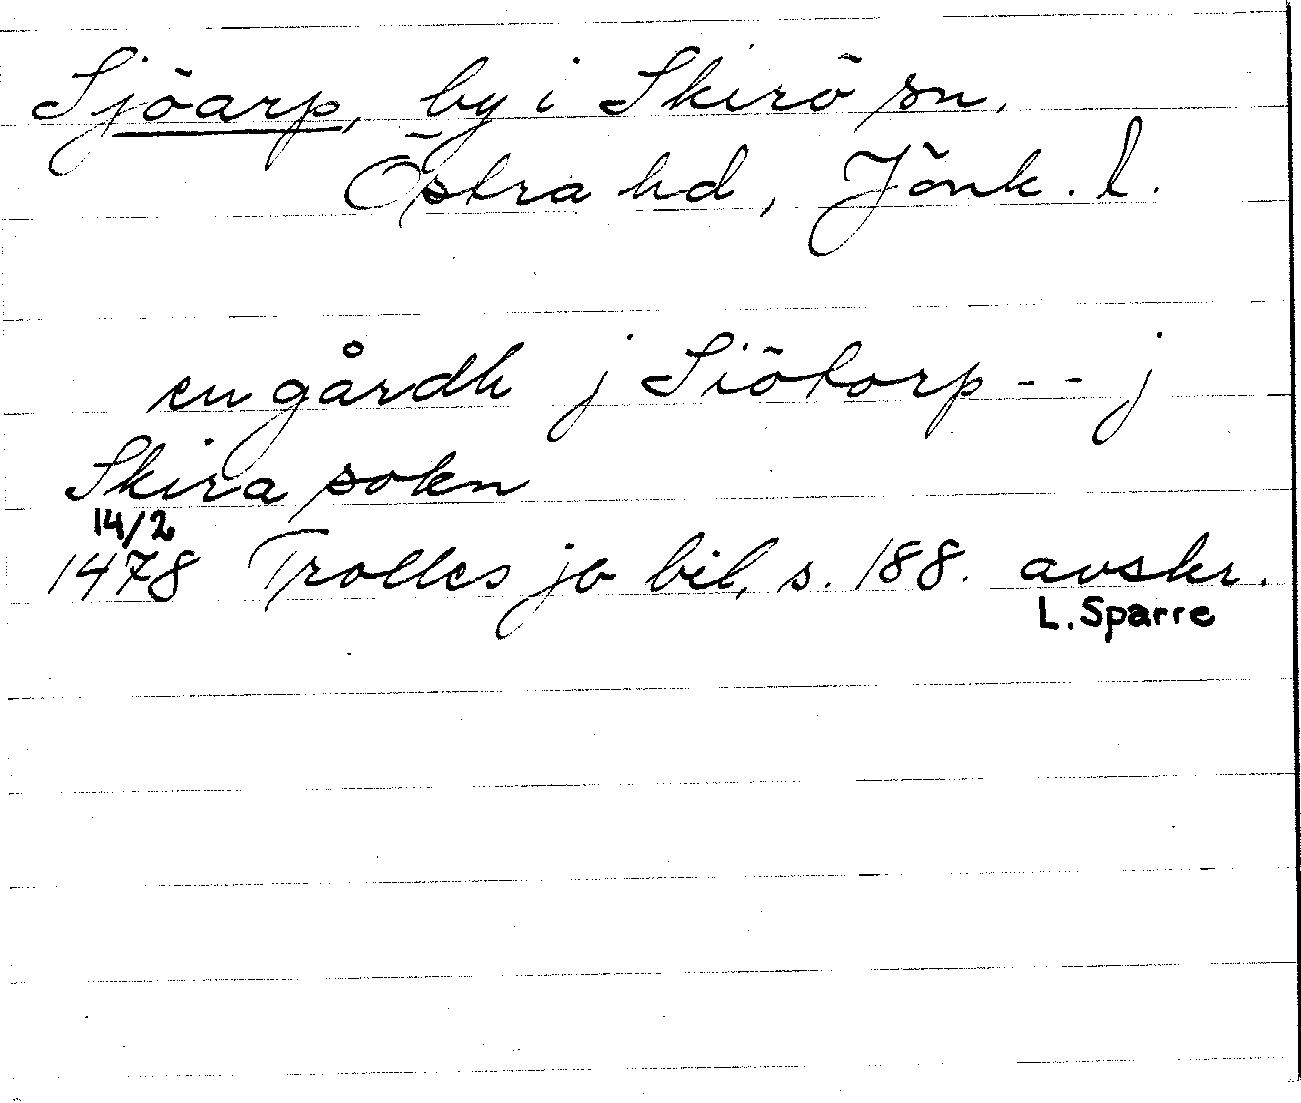 Sjöarp, by i Skirö sn.
Östra hd, Jönk. l.
en gårdh j Siötorp -- j
Skira sokn
14/2
1478 Trolles jo bil, s. 188. avskr.
L. Sparre